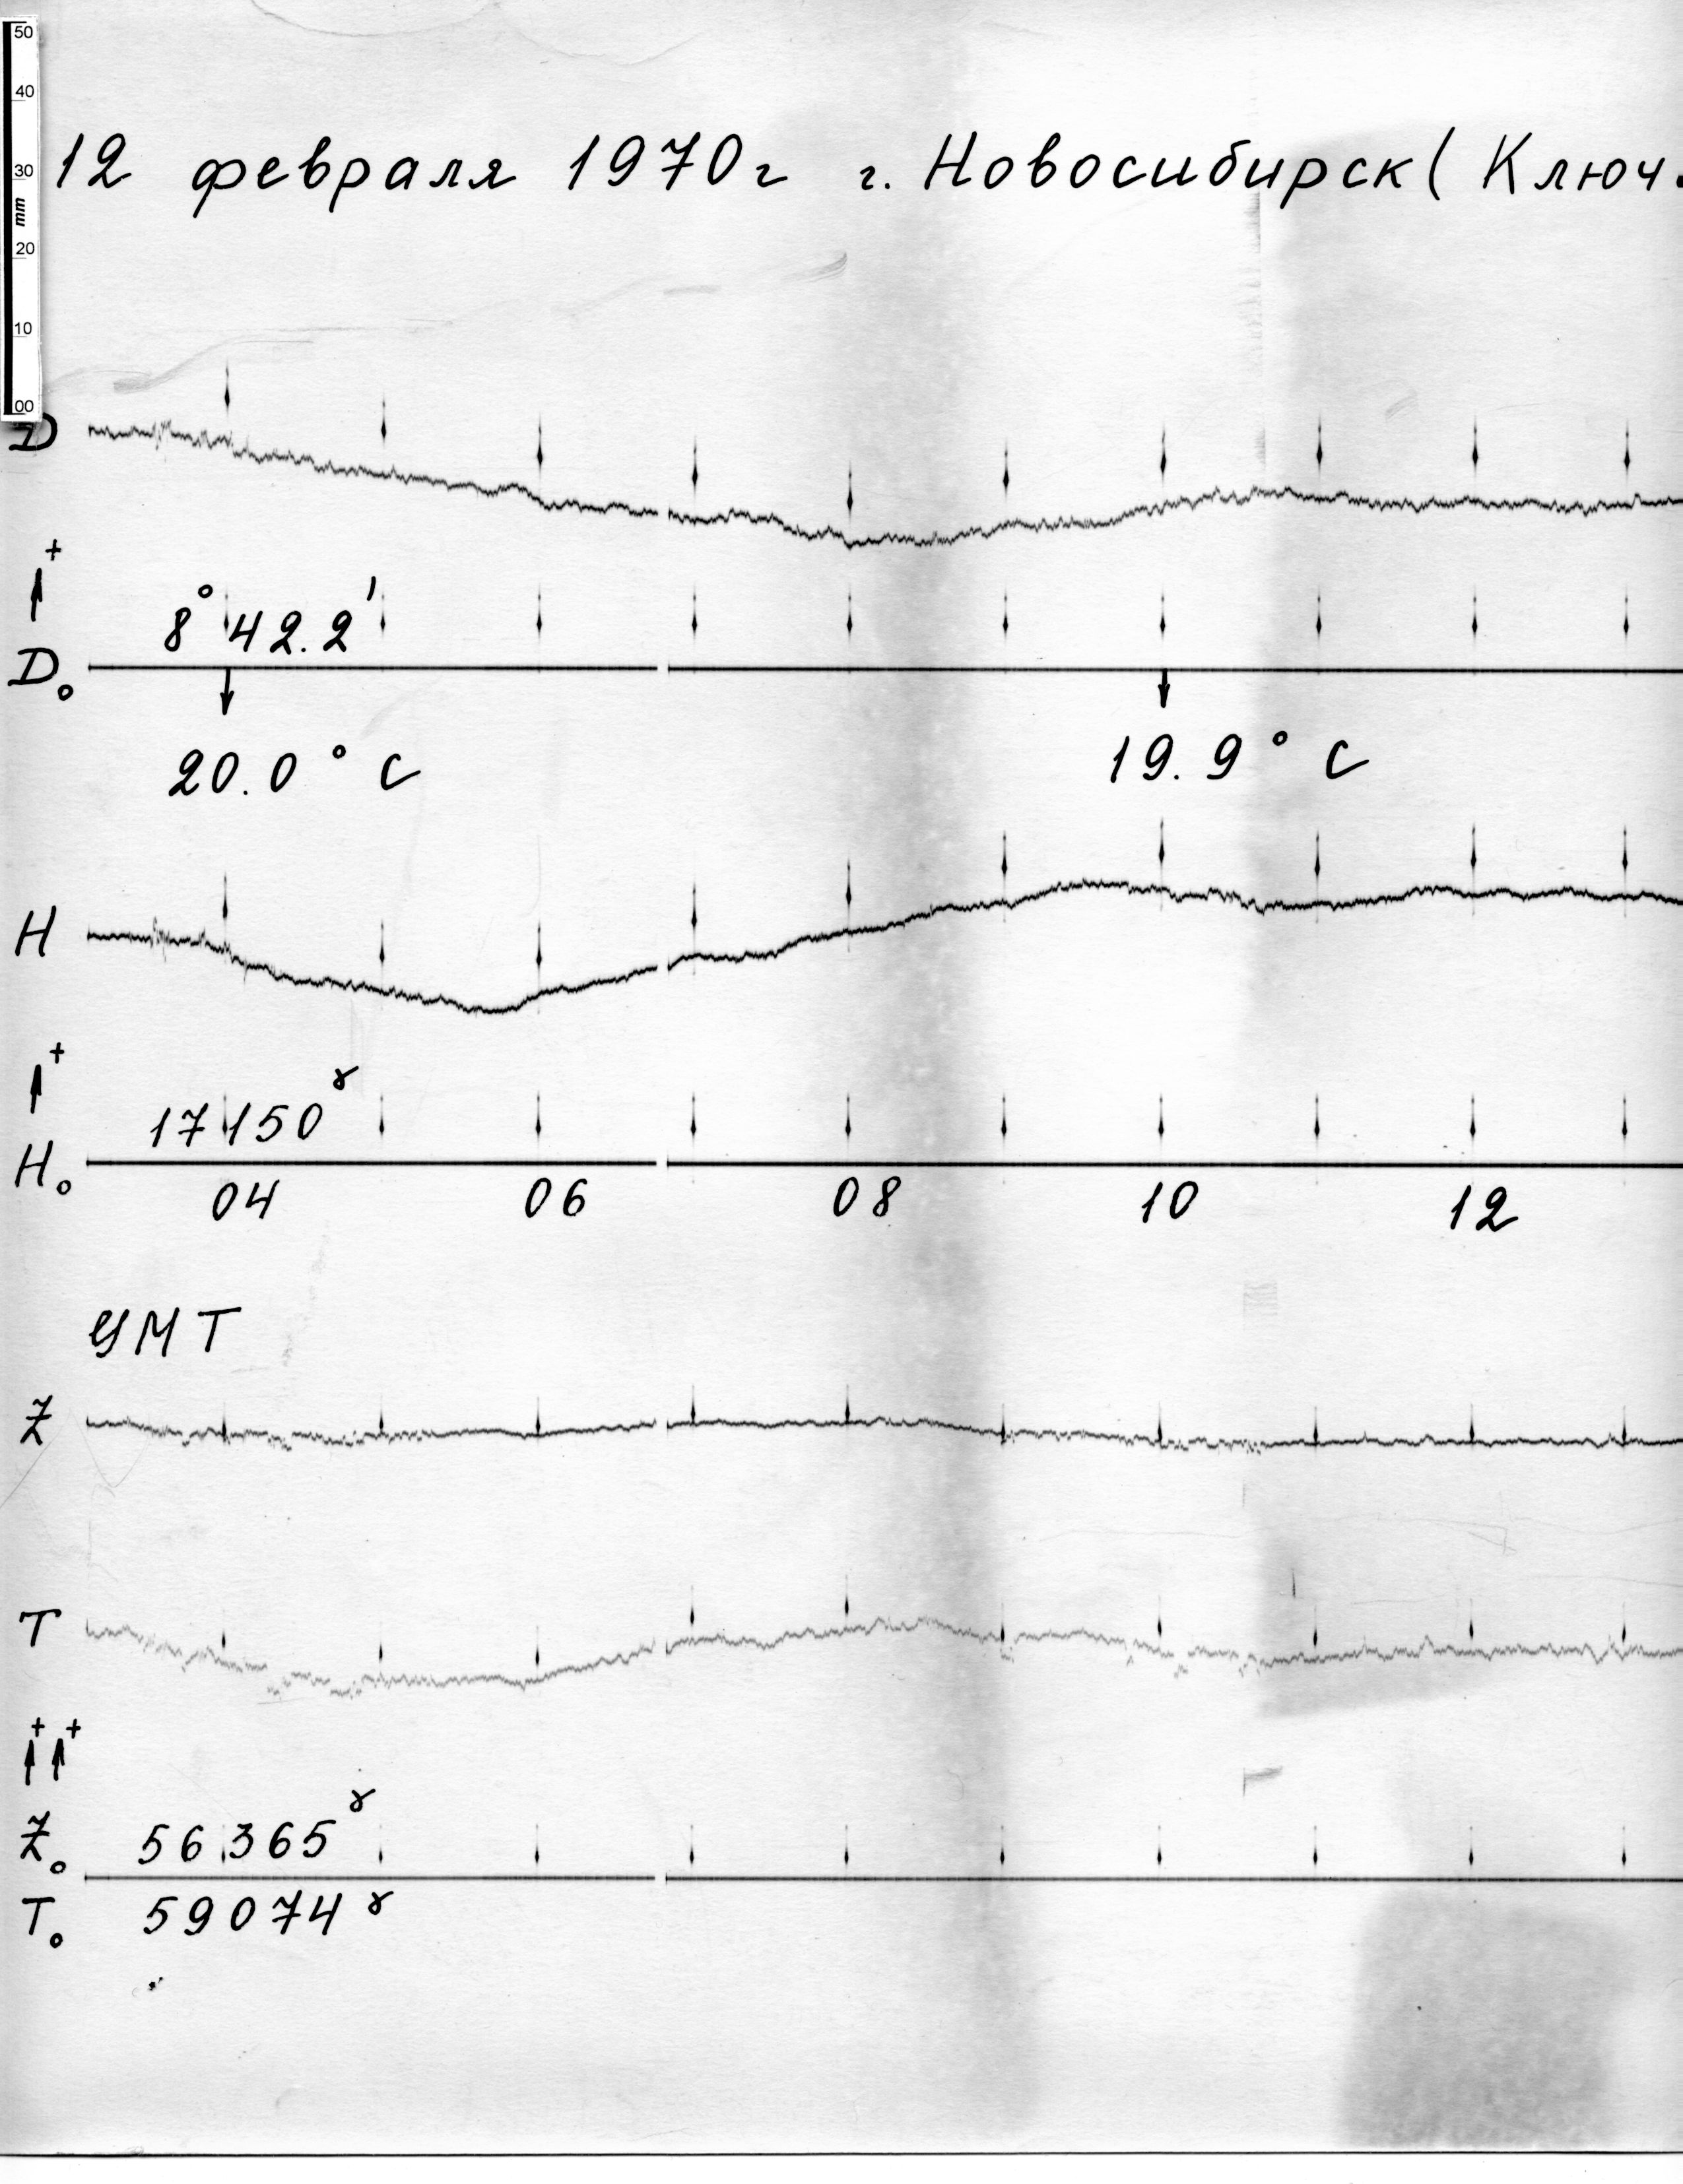 50
40
30
mm
20
10
00
12 февраля 1970г г. Новосибирск ( Ключ.
D
+
8° 42.2'
D₀
20.0 ° C 19.9 ° C
H
+
17150 γ
H₀
04 06 08 10 12
УМТ
Z
T
+ +
Z₀ 56365 γ
T₀ 59074 γ